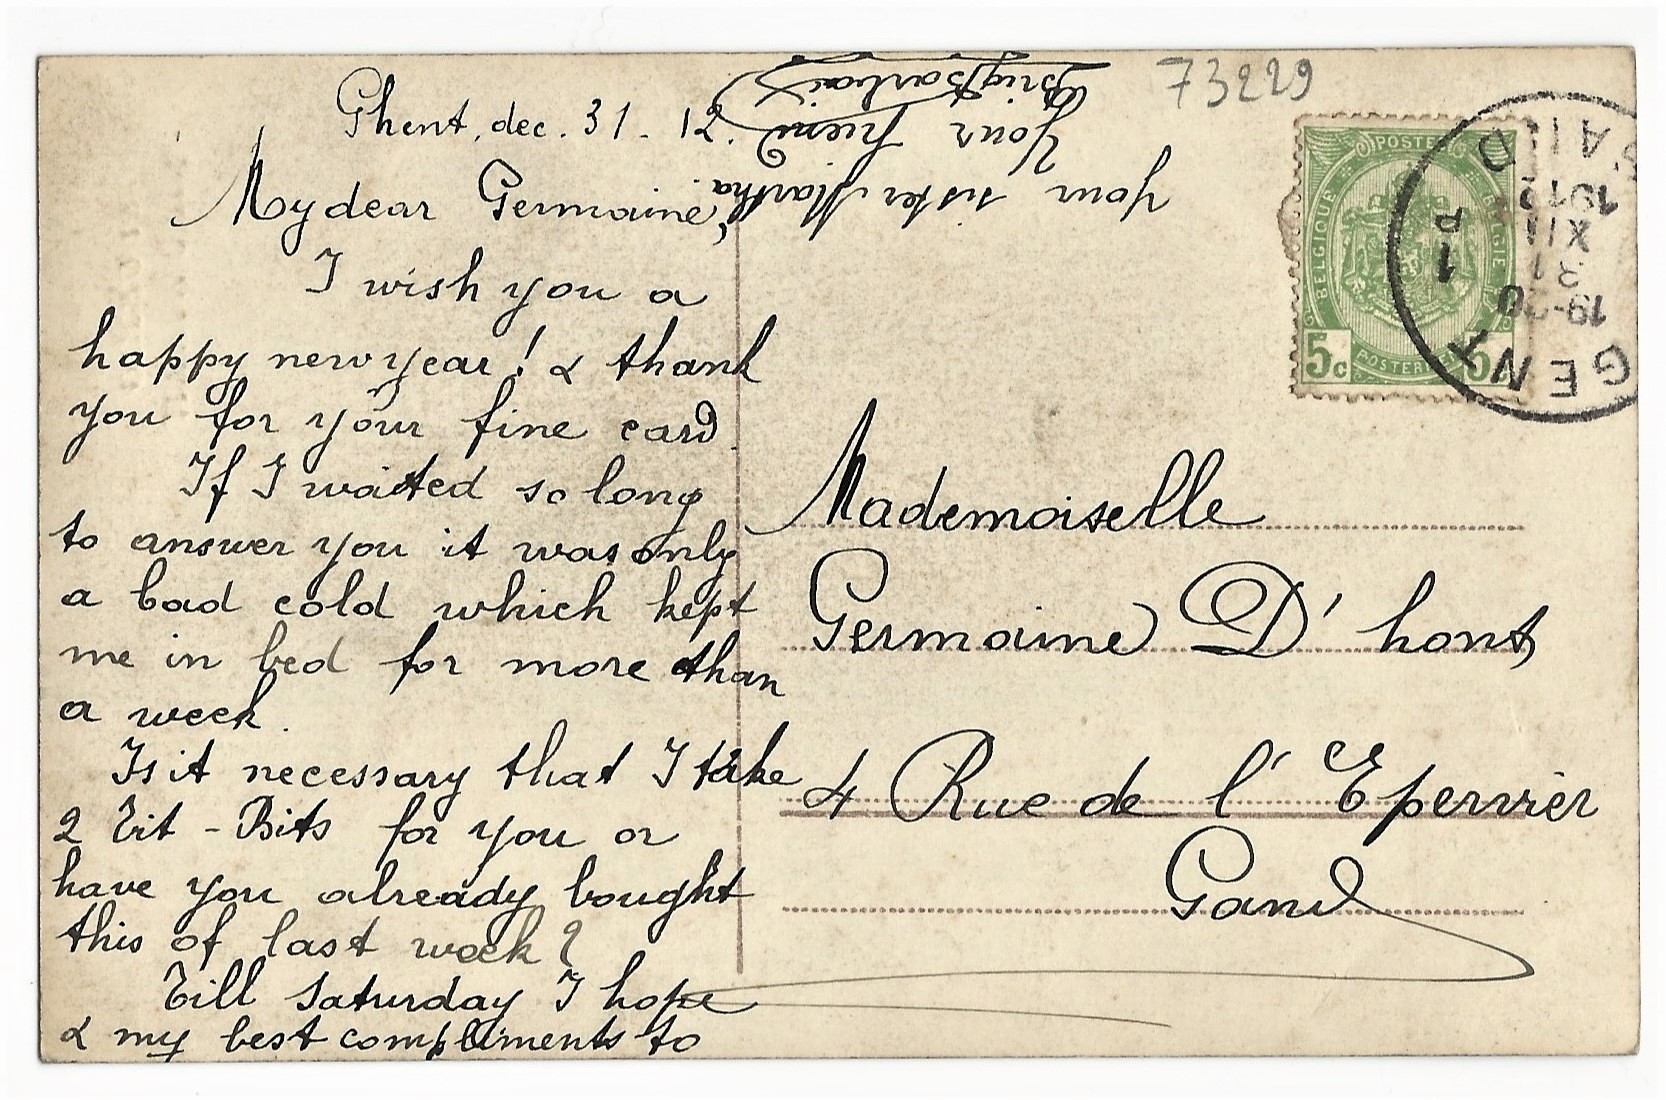 Ghent, dec. 31 - 12.
My dear Germaine,
I wish you a
happy new year! & thank
you for your fine card.
If I waited so long
to answer you it was only
a bad cold which kept
me in bed for more than
a week.
Is it necessary that I take
2 Tit - Bits for you or
have you already bought
this of last week?
Till saturday I hope
& my best compliments to
your sister Martha
Your friend
73229
POSTES
BELGIQUE
BELGIË
POSTERIJEN
5c 5c
GENT
19-20
31
XII
1912
1 P
Mademoiselle
Germaine D'hont
4 Rue de l'Epervier
Gand